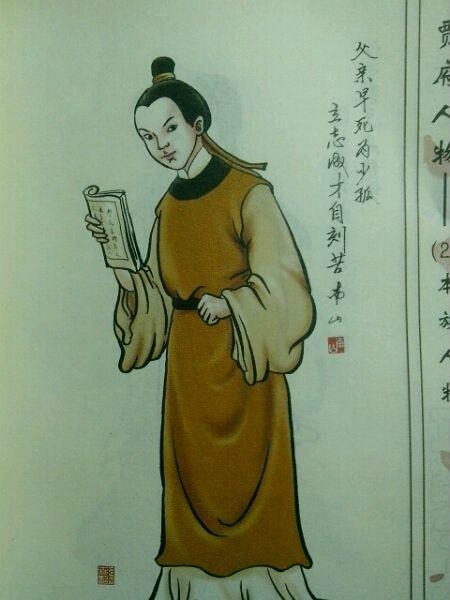 父亲早死为少孤
立志成才自刻苦 韦山
贾府人物——
(2)本族人物